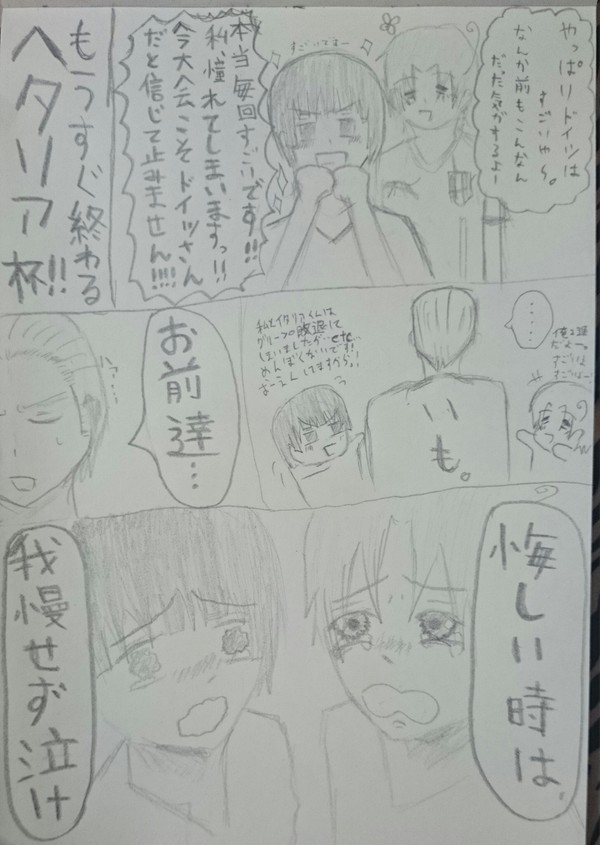 やっぱりドイツは
すごいやら。
なんか前もこんなん
だた気がするよー
すごいですー
本当毎回すごいです!!
私、憧れてしまいますっ!!
今大会こそドイツさん
だと信じて止みません!!!!
もうすぐ終わる
ヘタリア杯!!
・・・・
すごいよ
すごいよー
私とイタリアくんは、
グループの敗退して
しまいましたが…etc
めんぼくないです!
おーえんしてますから!
い
も。
お前達…
ハァ…
悔しい時は、
我慢せず泣け